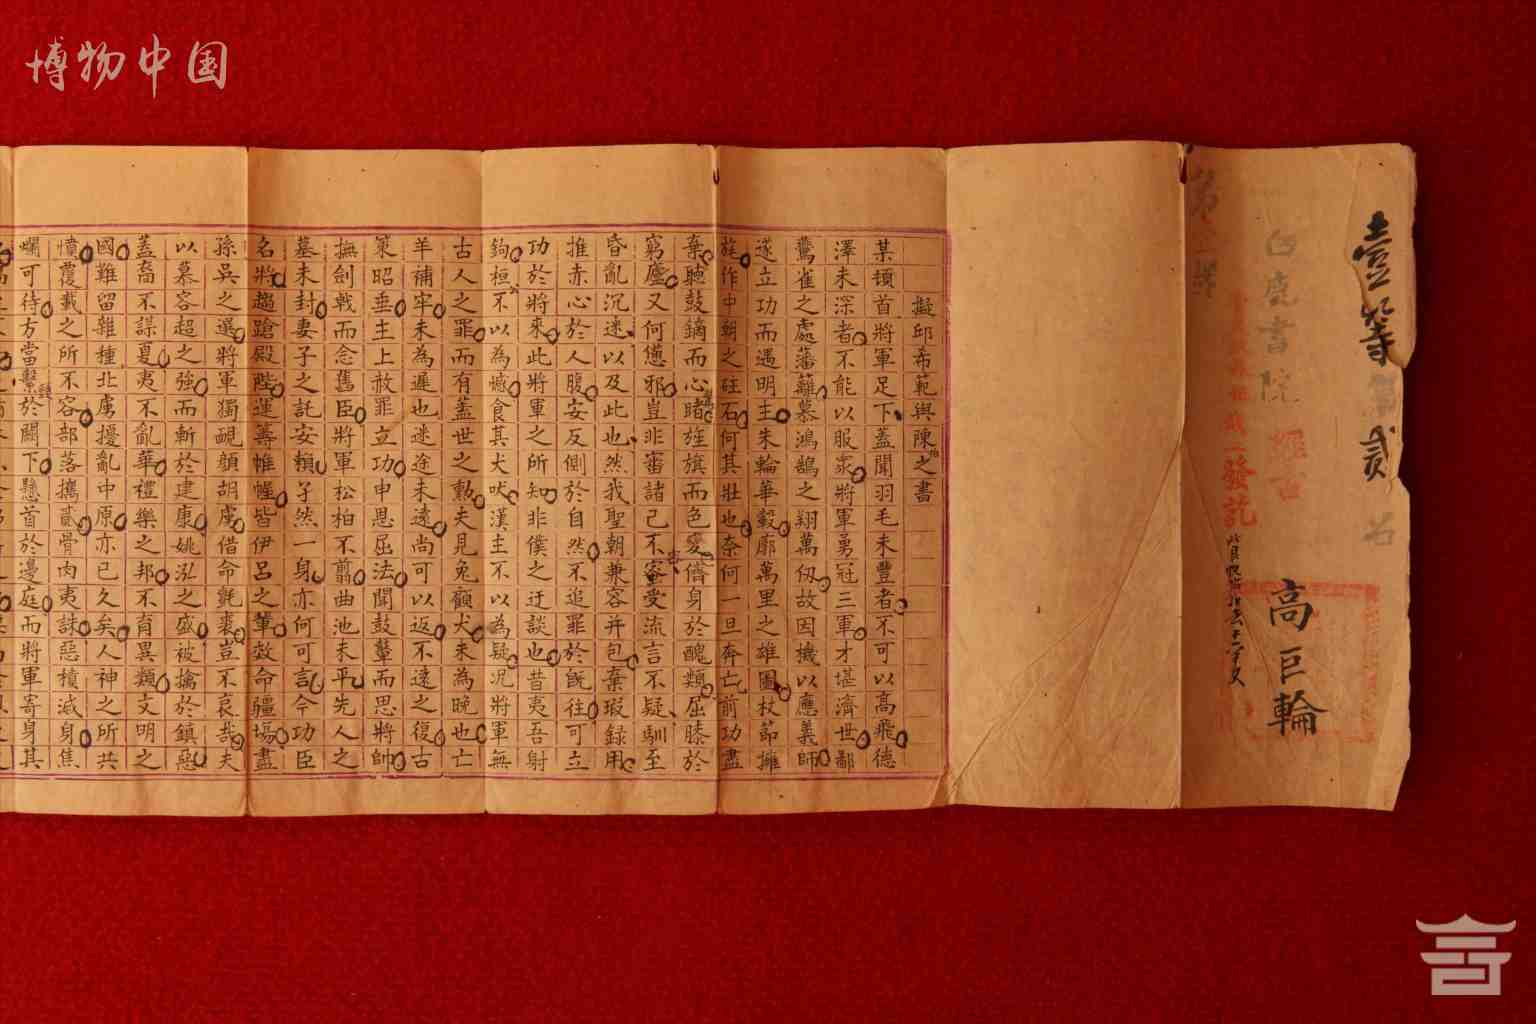 博物中国
壹等第貳名
高巨輪
白鹿書院
發訖
擬邱希範與陳之書
某頓首將軍足下蓋聞羽毛未豐者不可以高飛德
澤未深者不能以服衆將軍勇冠三軍才堪濟世鄙
鷰雀之處藩籬慕鴻鵠之翔萬仞故因機以應義師
遂立功而遇明主朱輪華轂廓萬里之雄圖杖節擁
旄作中朝之砥石何其壯也奈何一旦奔亡前功盡
棄聴鼓鏑而心睹旌旗而色變儕身於醜類屈膝於
窮廬又何憊邪豈非審諸己不蜜受流言不疑馴至
昏亂沉迷以及此也然我聖朝兼容并包棄瑕録用
推赤心於人腹安反側於自然不追罪於既往可立
功於將來此將軍之所知非僕之迂談也昔夷吾射
鉤桓不以為憾食其犬吠漢主不以為疑况將軍無
古人之罪而有蓋世之勲夫見兔顧犬未為晚也亡
羊補牢未為遲也迷途未遠尚可以返不遠之復古
策昭垂主上赦罪立功申恩屈法聞鼓鼙而思將帥
撫劍戟而念舊臣將軍松柏不翦曲池未平先人之
墓未封妻子之託安賴孑然一身亦何可言今功臣
名將趨蹌殿陛運籌帷幄皆伊呂之輩效命疆場盡
孫吳之選將軍獨靦顔胡虜借命氈裘豈不哀哉夫
以慕容超之強而斬於建康姚泓之盛被擒於鎮惡
蓋裔不謀夏夷不亂華禮樂之邦不育異類文明之
國難留雜種北虜擾亂中原亦已久矣人神之所共
憤覆載之所不容部落攜貳骨肉夷誅惡積滅身焦
爛可待方當繫於闕下懸首於邊庭而將軍寄身其